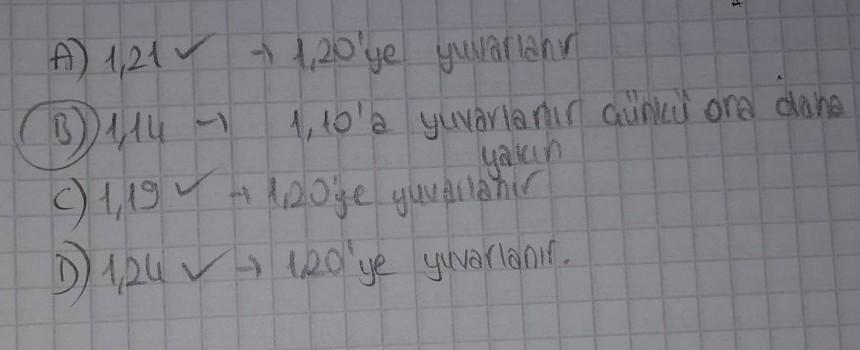 A) 1,21 ✓ → 1,20'ye yuvarlanır
B) 1,14 → 1,10'a yuvarlanır çünkü ona daha
yakın
C) 1,19 ✓ → 1,20'ye yuvarlanır
D) 1,24 ✓ → 1,20'ye yuvarlanır.